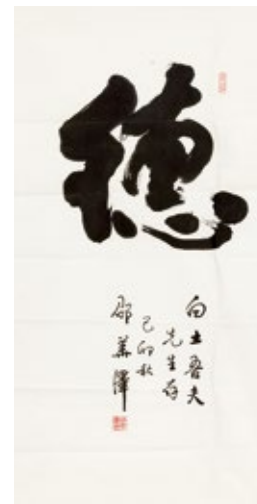 德
白土吾夫
先生存
己卯秋
邵華澤